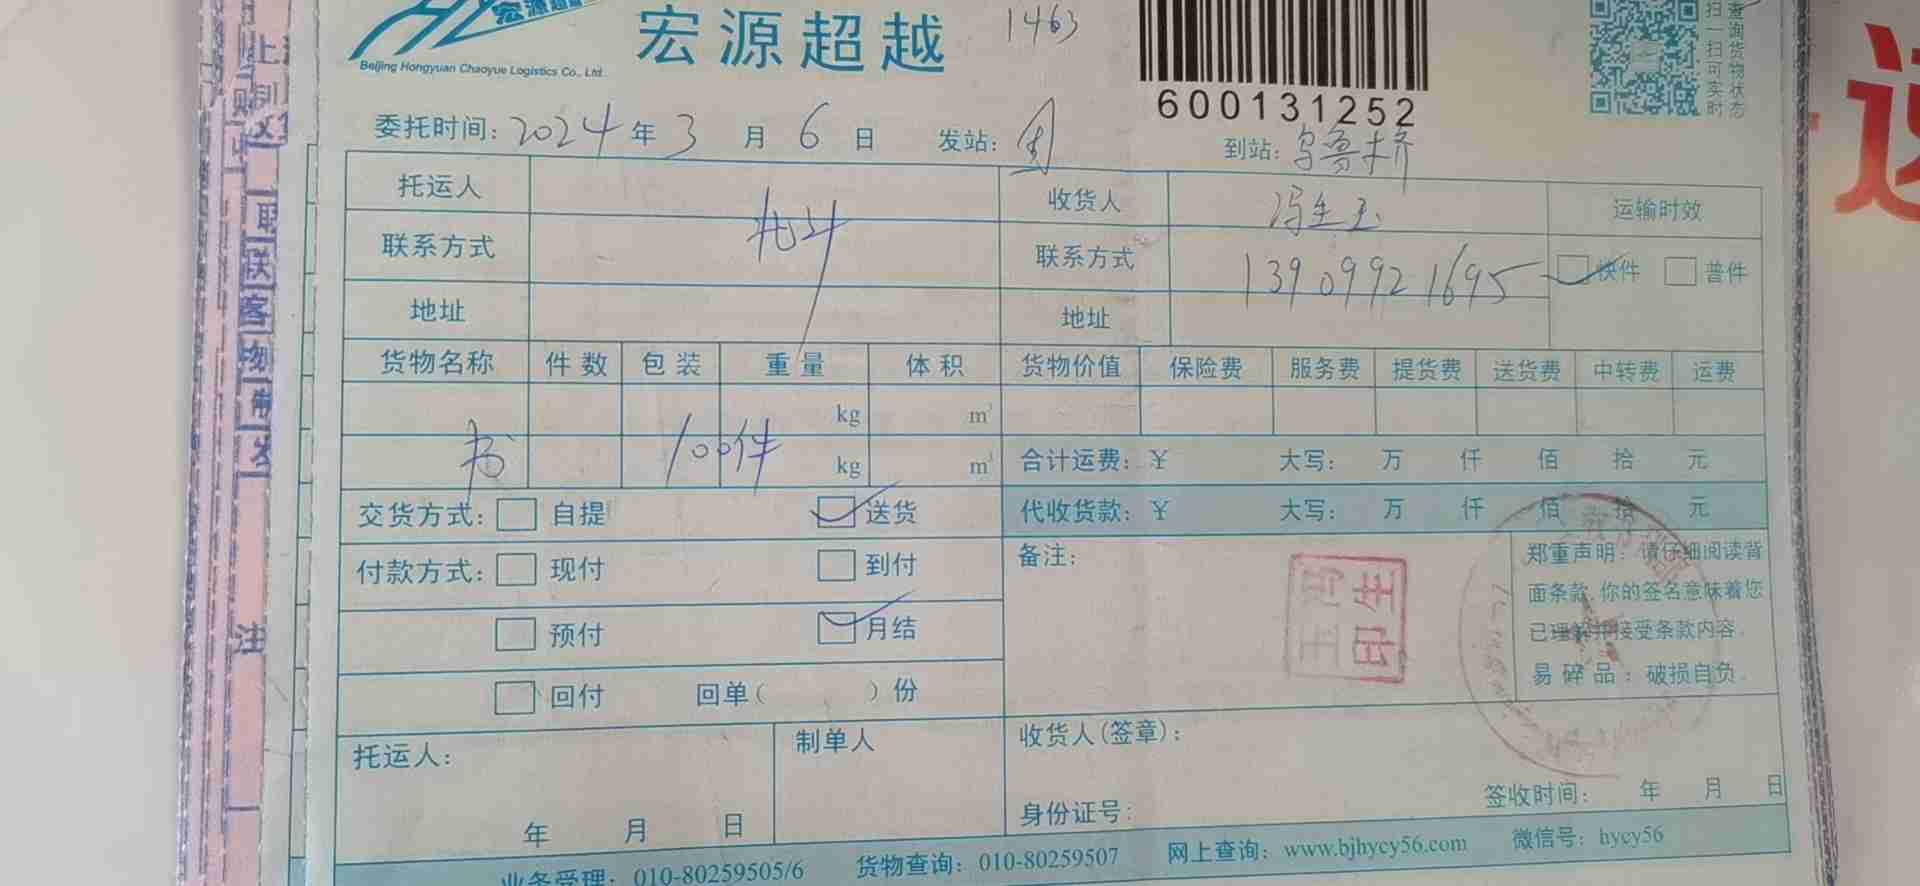 宏源超
宏源超越
1463
Beijing Hongyuan Chaoyue Logistics Co., Ltd.
600131252
扫一扫可实时
查询货物状态
委托时间: 2024 年 3 月 6 日 发站: 到站: 乌鲁木齐
托运人 收货人 冯生玉 运输时效
联系方式 联系方式 13909921695 快件 普件
地址 地址
货物名称 件数 包装 重量 体积 货物价值 保险费 服务费 提货费 送货费 中转费 运费
kg m³
书 100件 kg m³ 合计运费: ¥ 大写: 万 仟 佰 拾 元
交货方式: 自提 送货 代收货款: ¥ 大写: 万 仟 佰 拾 元
付款方式: 现付 到付 备注:
预付 月结
回付 回单( )份
郑重声明: 请仔细阅读背
面条款,你的签名意味着您
已理解并接受条款内容.
易碎品: 破损自负.
托运人: 制单人 收货人(签章):
年 月 日 身份证号: 签收时间: 年 月 日
业务受理: 010-80259505/6 货物查询: 010-80259507 网上查询: www.bjhycy56.com 微信号: hycy56
注